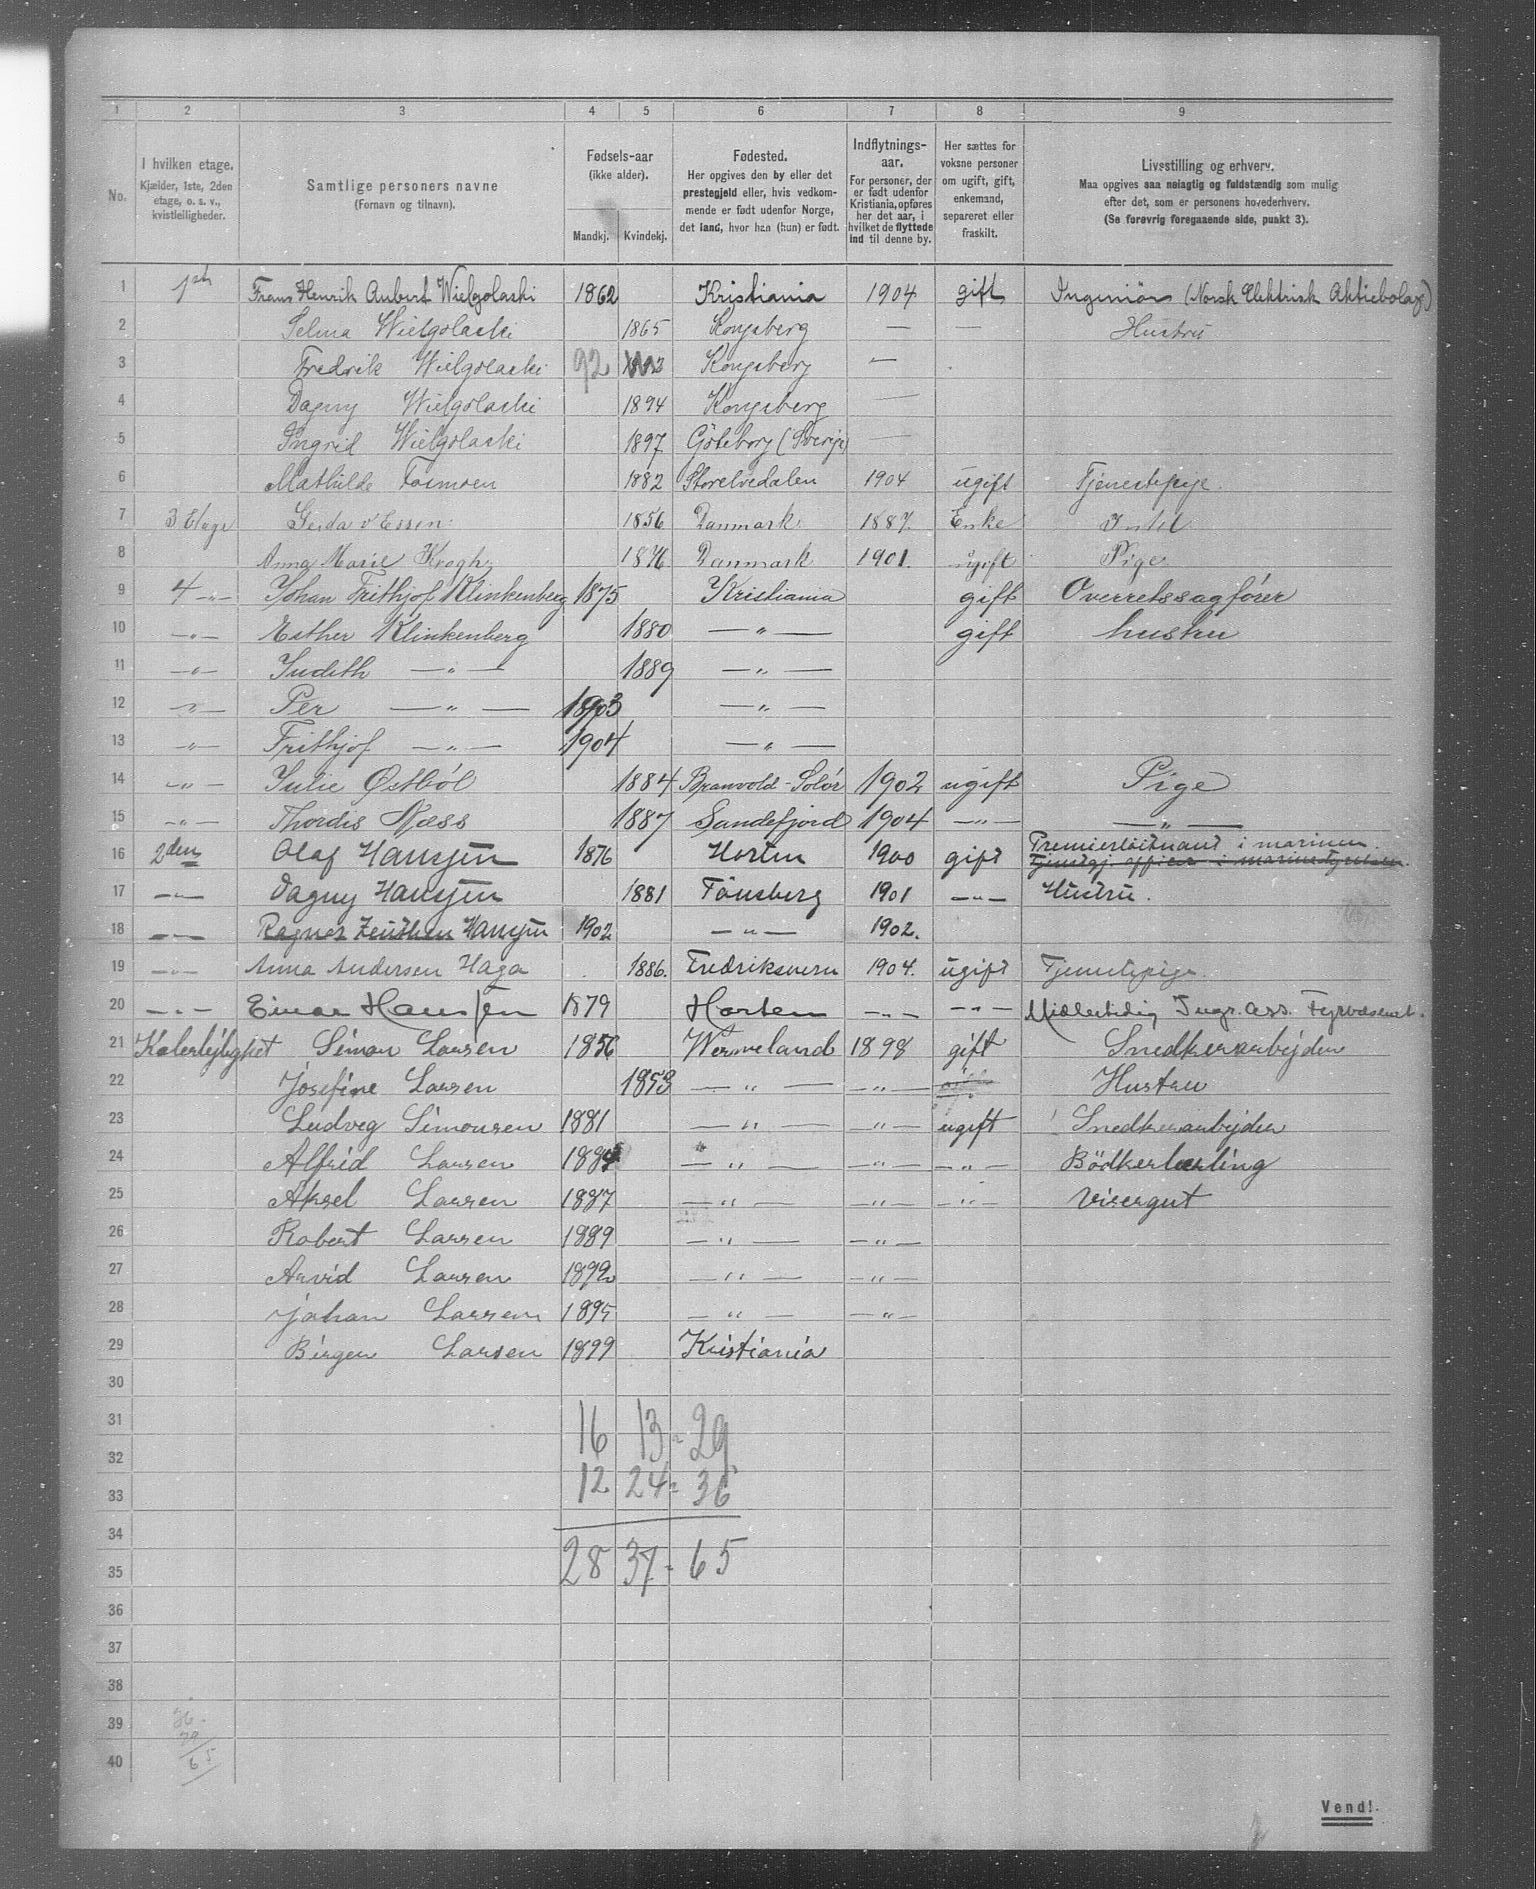 1 2 3 4 5 6 7 8 9
No.
I hvilken etage.
Kjælder, 1ste, 2den
etage, o. s. v.,
kvistleiligheder.
Samtlige personers navne
(Fornavn og tilnavn).
Fødsels-aar
(ikke alder).
Mandkj. Kvindekj.
Fødested.
Her opgives den by eller det
prestegjeld eller, hvis vedkom-
mende er født udenfor Norge,
det land, hvor han (hun) er født.
Indflytnings-
aar.
For personer, der
er født udenfor
Kristiania, opføres
her det aar, i
hvilket de flyttede
ind til denne by.
Her sættes for
voksne personer
om ugift, gift,
enkemand,
separeret eller
fraskilt.
Livsstilling og erhverv.
Maa opgives saa nøiagtig og fuldstændig som mulig
efter det, som er personens hovederhverv.
(Se forøvrig foregaaende side, punkt 3).
1 1ste Frans Henrik Aubert Wielgolaski 1862 Kristiania 1904 gift Ingeniör (Norsk Elektrisk Aktiebolag)
2 Selma Wielgolaski 1865 Kongsberg — — Hustru
3 Fredrik Wielgolaski 92 Kongsberg —
4 Dagny Wielgolaski 1894 Kongsberg —
5 Ingrid Wielgolaski 1897 Göteborg (Sverije) —
6 Mathilde Fosmoen 1882 Storelvedalen 1904 ugift Tjenestepige.
7 3 Etage Gerda v. Essen. 1856 Danmark 1887. Enke
8 Anna Marie Krogh 1876 Danmark 1901. ugift Pige
9 4 —„— Johan Frithjof Klinkenberg 1875 Kristiania gift Overretssagfører
10 —„— Esther Klinkenberg 1880 —„— gift hustru
11 —„— Judith —„— 1889 —„—
12 —„— Per —„— 1903 —„—
13 —„— Frithjof —„— 1904 —„—
14 —„— Julie Østböl 1884 Branvold-Solör 1902 ugift Pige
15 —„— Thordis Næss 1887 Sandefjord 1904 —„— —„—
16 2den Olaf Hansen 1876 Horten 1900 gift Premierløitnant i marinen.
Tjenestgj. officer i marinestyrelsen.
17 —„— Dagny Hansen 1881 Tönsberg 1901 —„— Hustru.
18 —„— Ragnar Zeuthen Hansen 1902 —„— 1902.
19 —„— Anna Andersen Haga 1886. Fredriksvern 1904. ugift Tjenestepige.
20 —„— Einar Hansen 1879 Horten —„— —„— Midlertidig Ingr. Ass. Fyrvæsenet.
21 Kælerlejlighet Simon Larsen 1856 Wermeland 1898 gift Snedkerarbejder
22 Josefine Larsen 1853 —„— —„— Hustru
23 Ludveg Simonsen 1881 —„— —„— ugift Snedkerarbejder
24 Alfrid Larsen 1884 —„— —„— —„— Bödkerlærling
25 Aksel Larsen 1887 —„— —„— —„— Visergut
26 Robert Larsen 1889 —„— —„—
27 Arvid Larsen 1892 —„— —„—
28 Johan Larsen 1895 —„— —„—
29 Birger Larsen 1899 Kristiania
30
31 16 13 = 29
32
33 12 24 = 36
34
35 28 37 - 65
36
37
38
39 36
29
40 65
Vend!